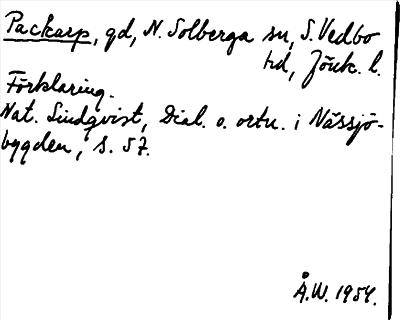 Packarp, gd, N. Solberga sn, S. Vedbo
hd, Jönk. l.
Förklaring.
Nat. Lindqvist, Dial. o. ortn. i Nässjö-
bygden, s. 57.
Å.W. 1954.